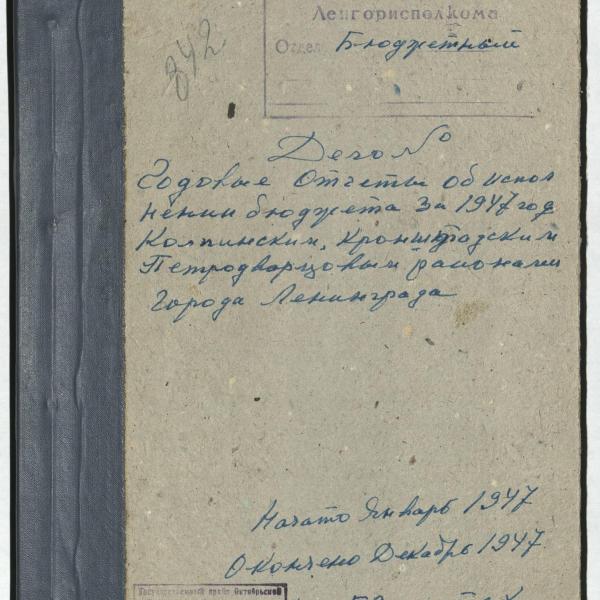 Ленгорисполкома
Отдел Бюджетный
842
Дело №
Годовые Отчеты об испол
нении бюджета за 1947 год
Колпинским, Кронштадтским
Петродварцовым районами
города Ленинграда
Начато Январь 1947
Окончено Декабрь 1947
Государственный архив Октябрьской